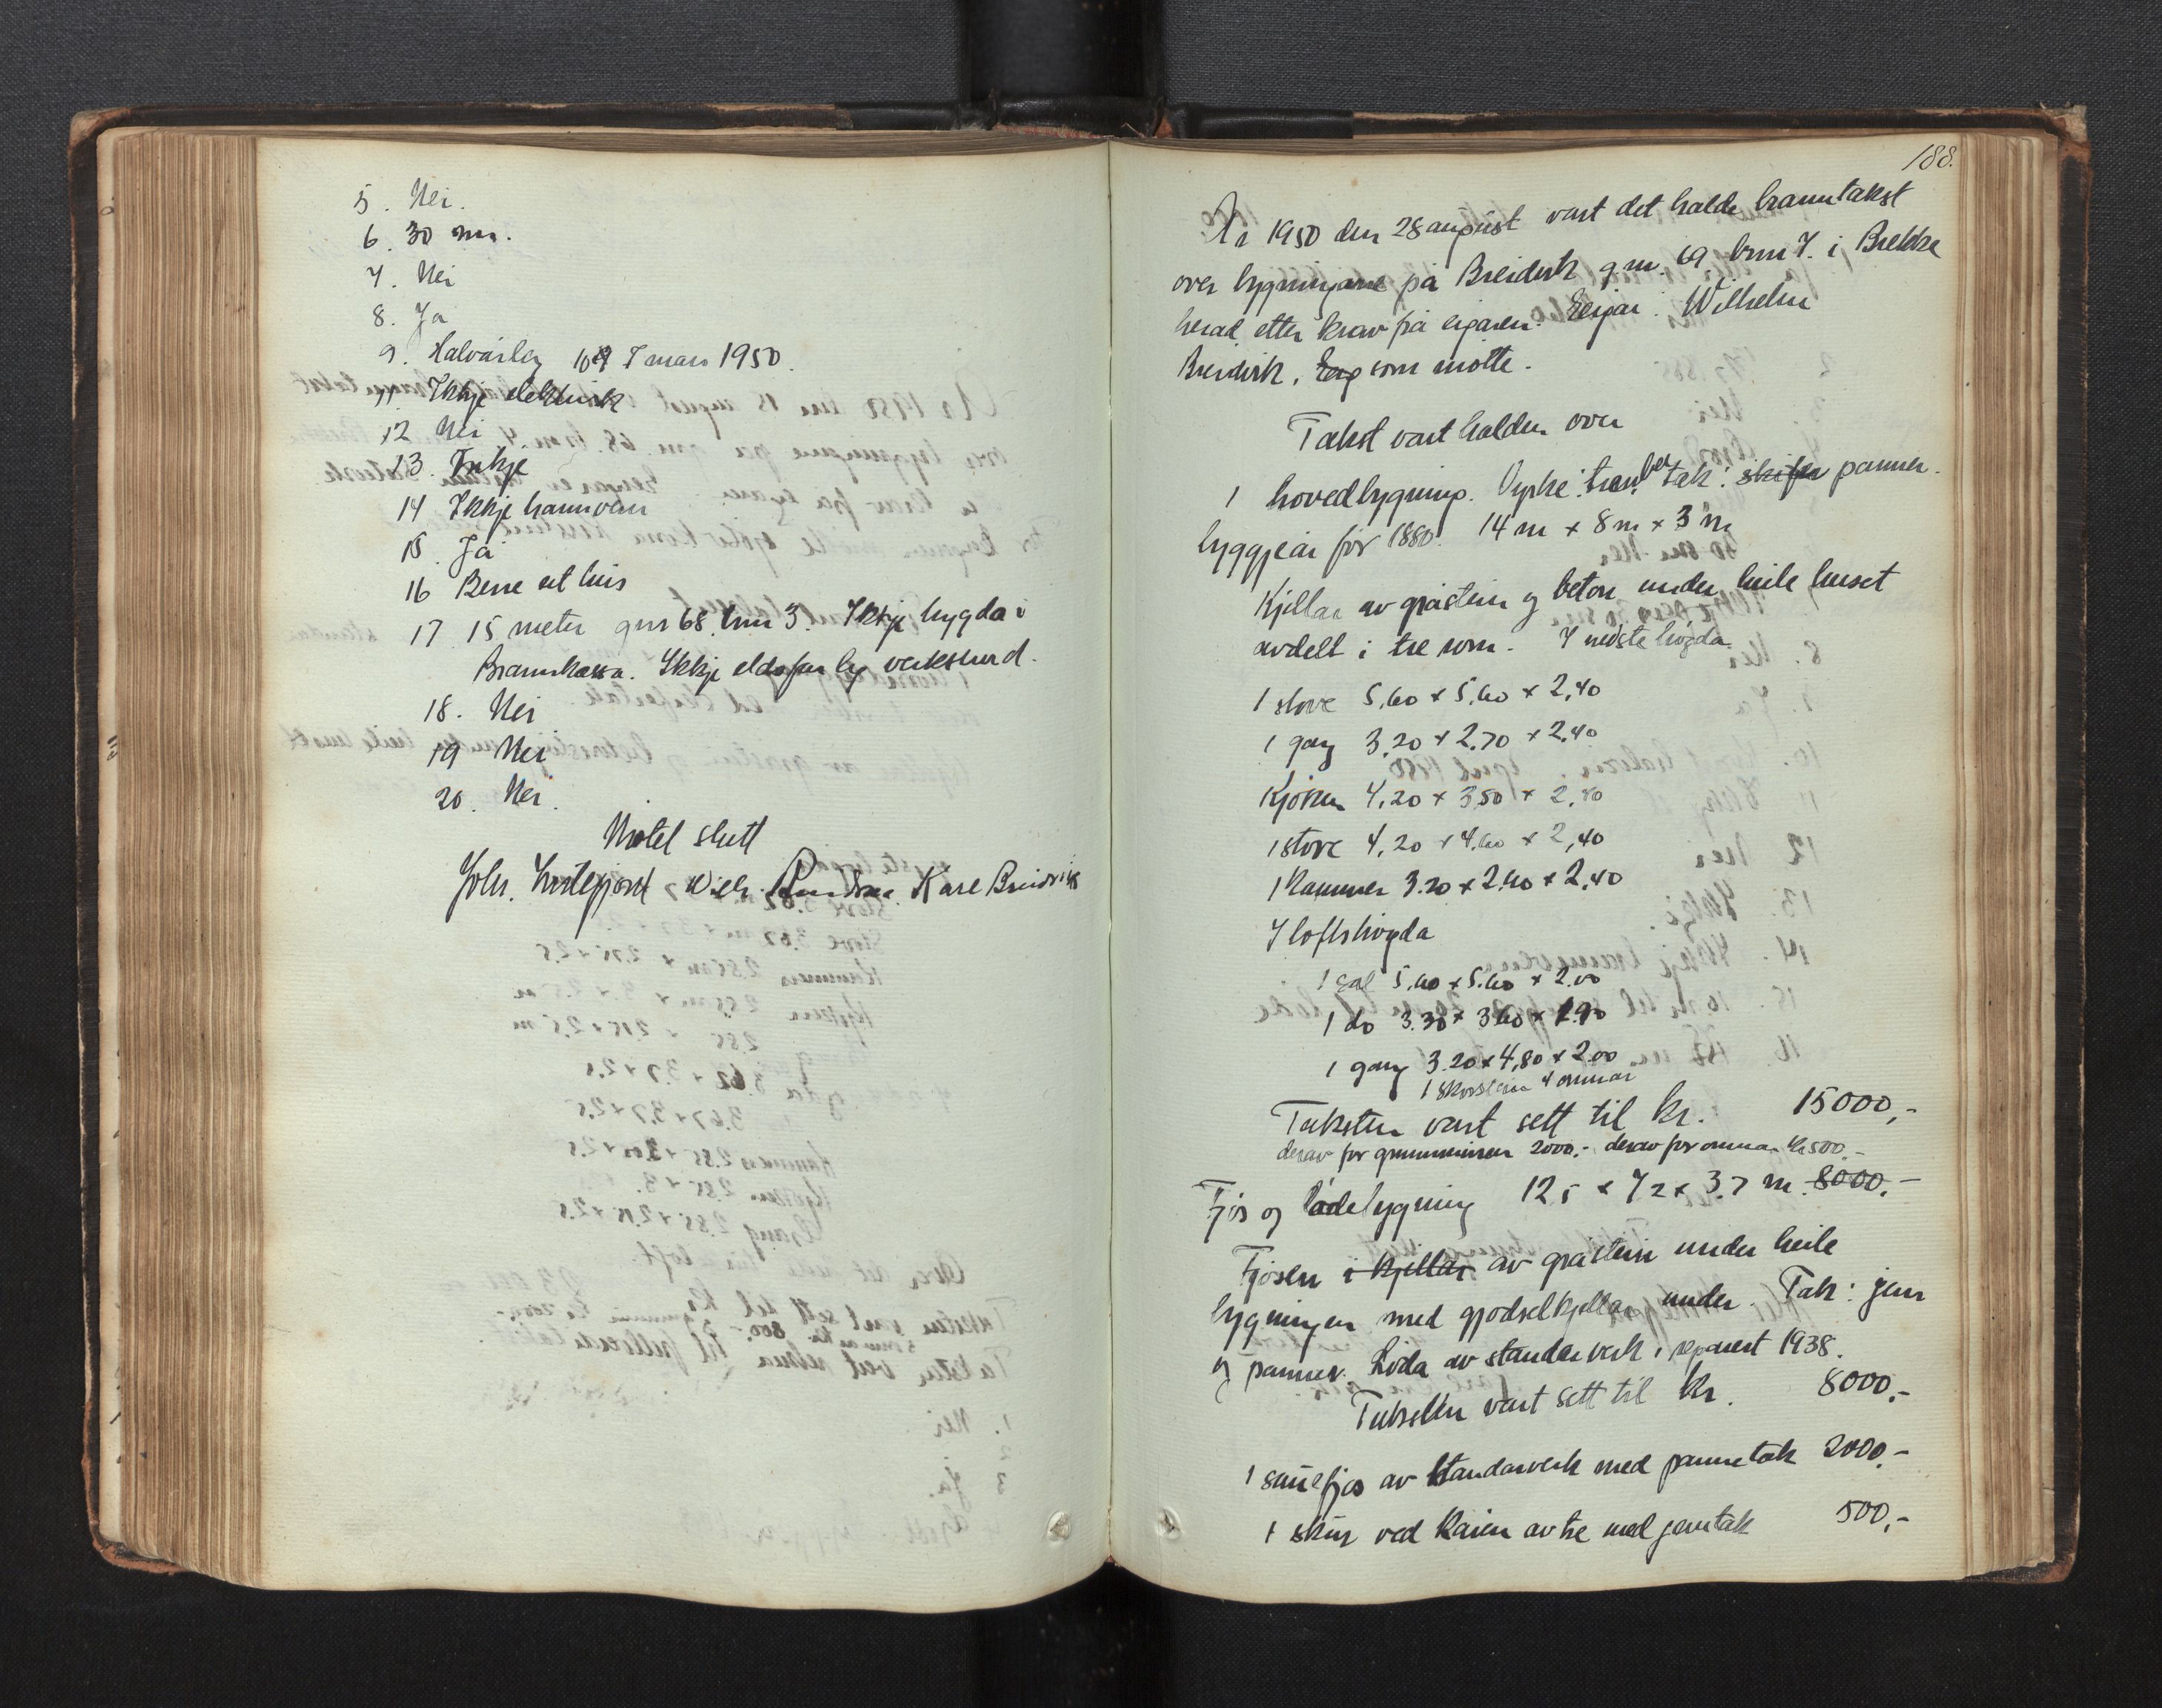 5. Nei.
6. 30 m.
7. Nei
8. Ja
9. Halvårleg 10 7 mars 1950.
11 Ikkje elektrisk
12 Nei
13. Inkje
14 Ikkje brannvern
15. Ja
16 Berre eit hus
17 15 meter gnr 68. bnr 3. Ikkje bygda i
Brannkassa. Ikkje eldsfarleg verksemd.
18. Nei
19 Nei
20. Nei.
Møtet slutt
Joh. Kåre Breidvik
188.
År 1950 den 28 august vart det halde branntakst
over bygningane på Breidvik gnr. 69 brnr 7. i Brekke
herad etter krav frå eigaren. Eigar: Wilhelm
Breidvik, Eig som møtte.
Takst vart halden over
1 hovedbygning. Tak: skifer panner.
byggjeår før 1880. 14 m x 8 m x 3 m
Kjellar av gråstein og betong under heile huset
avdelt i tre rom. I nedste høgda
1 stove 5.60 x 5.60 x 2,40
1 gang 3.20 x 2.70 x 2.40
Kjøken 4,20 x 3.50 x 2,40
1 stove 4,20 x 4.60 x 2,40
1 Kammer 3.20 x 2.40 x 2,40
I loftshøgda
1 sal 5.60 x 5.60 x 2.00
1 do 3.30 x 3.60 x 1.90
1 gang 3.20 x 4,80 x 2.00
1 skorstein 4 omnar
Taksten vart sett til kr. 15000,-
derav for grunnmuren 2000.- derav for omnar kr 500.-
Fjøs og lødebygning 12 5 x 7 2 x 3.7 m. 8000.-
Fjøsen i kjellar av gråstein under heile
bygningen med gjødselkjellar under. Tak: jern
og panner. Løda av standarverk, reparert 1938.
Taksten vart sett til kr. 8000.-
1 sauefjøs av standarverk med pannetak 2000.-
1 skur ved kaien av tre med jerntak 500,-